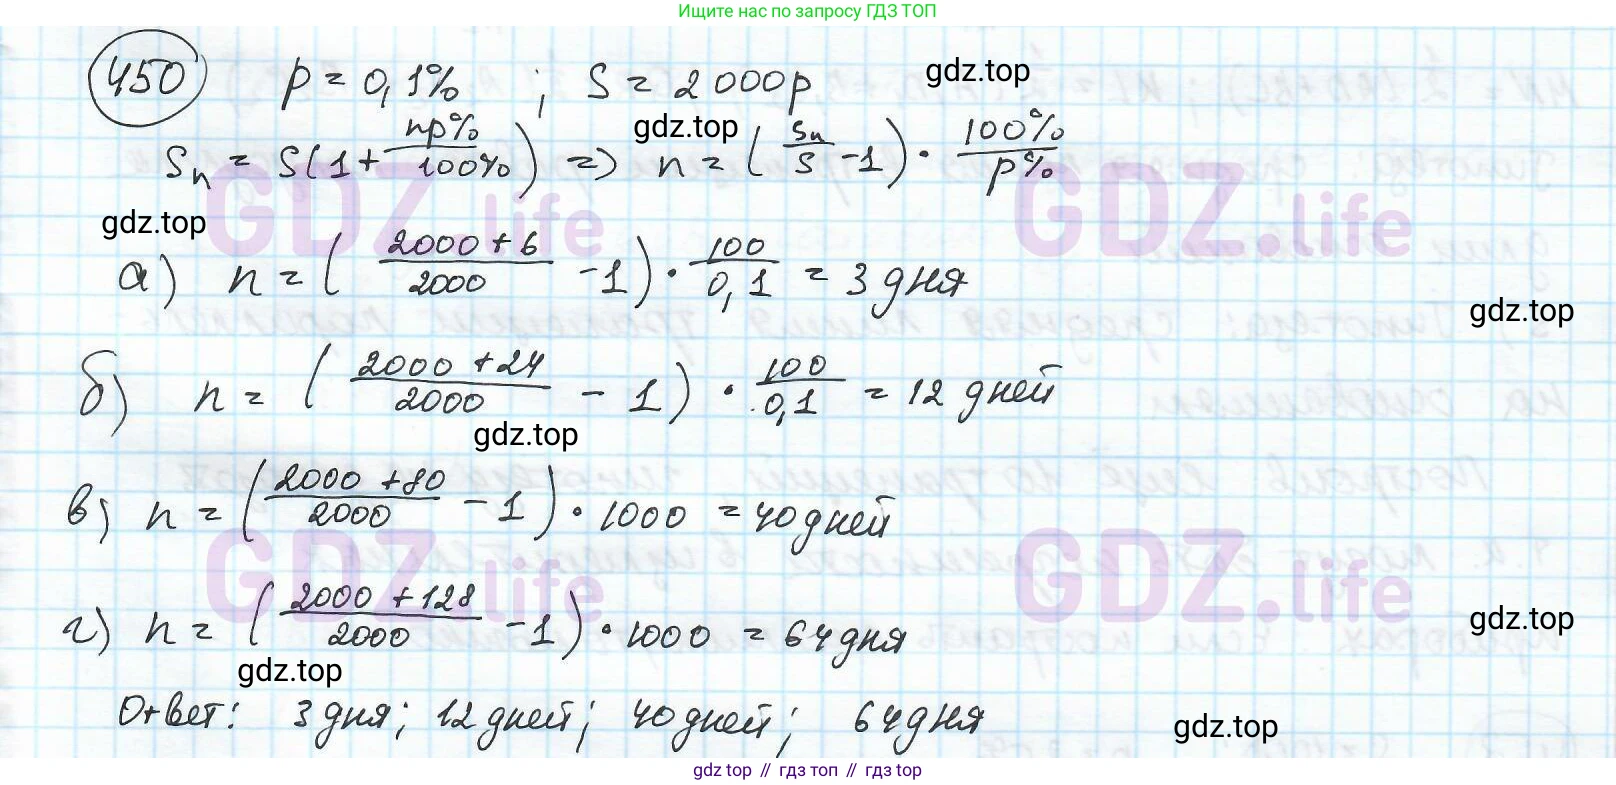 Ищите нас по запросу ГДЗ ТОП
450 p = 0,1% ; S = 2000р
gdz.top
gdz.top
Sn = S(1 + np%/100%) => n = (Sn/S - 1) · 100%/p%
GDZ.life GDZ.life
gdz.top
а) n = (2000 + 6/2000 - 1) · 100/0,1 = 3 дня
gdz.top
б) n = (2000 + 24/2000 - 1) · 100/0,1 = 12 дней
gdz.top
в) n = (2000 + 80/2000 - 1) · 1000 = 40 дней
GDZ.life GDZ.life
г) n = (2000 + 128/2000 - 1) · 1000 = 64 дня
gdz.top
gdz.top
Ответ: 3 дня; 12 дней; 40 дней; 64 дня
gdz.top
gdz top // гдз топ // гдз top